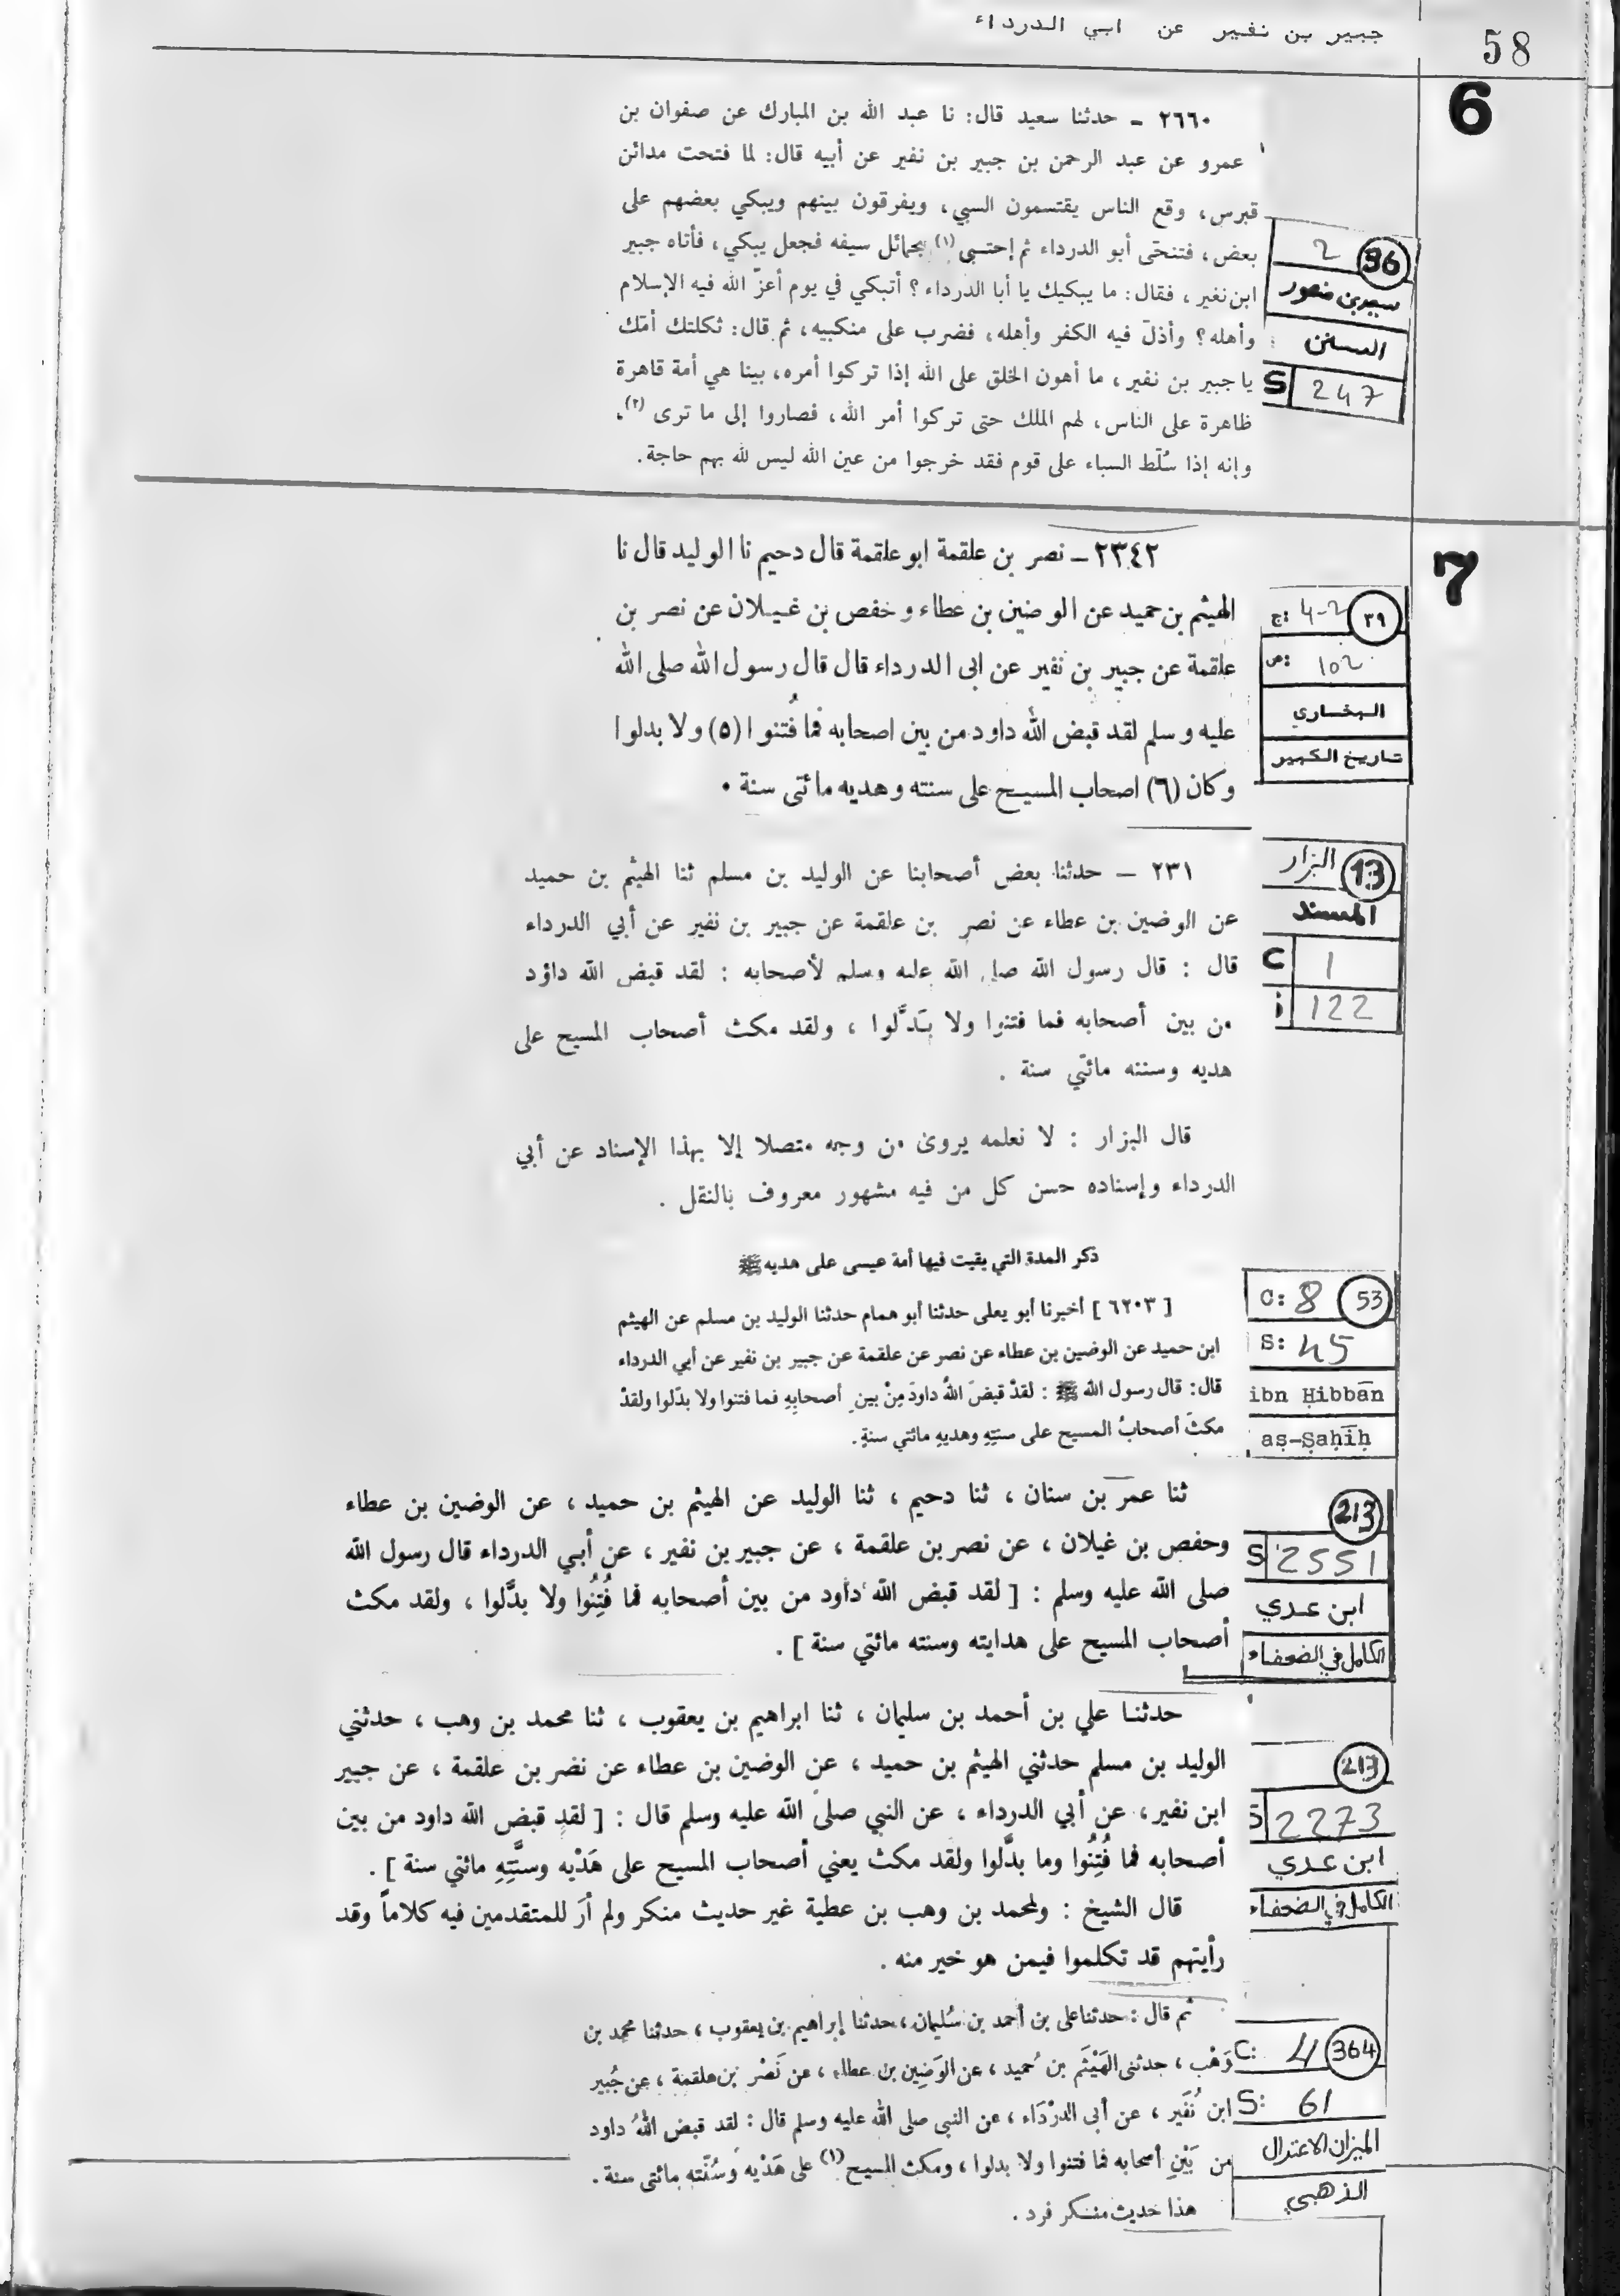 جبير بن نفير عن ابي الدرداء
58
6
٢٦٦٠ - حدثنا سعيد قال: نا عبد الله بن المبارك عن صفوان بن
عمرو عن عبد الرحمن بن جبير بن نفير عن أبيه قال: لما فتحت مدائن
قبرس، وقع الناس يقتسمون السبي، ويفرقون بينهم ويبكي بعضهم على
بعض، فتنحّى أبو الدرداء ثم إحتبى (١) بحمائل سيفه فجعل يبكي، فأتاه جبير
ابن نفير، فقال: ما يبكيك يا أبا الدرداء؟ أتبكي في يوم أعزّ الله فيه الإسلام
وأهله؟ وأذلّ فيه الكفر وأهله، فضرب على منكبيه، ثم قال: ثكلتك أمّك
يا جبير بن نفير، ما أهون الخلق على الله إذا تركوا أمره، بينا هي أمة قاهرة
ظاهرة على الناس، لهم الملك حتى تركوا أمر الله، فصاروا إلى ما ترى (٢)،
وإنه إذا سُلّط السباء على قوم فقد خرجوا من عين الله ليس لله بهم حاجة.
2 36
سعيد بن منصور
السنن
S 247
7
٢٣٤٢ - نصر بن علقمة ابو علقمة قال دحيم نا الوليد قال نا
الهيثم بن حميد عن الوضين بن عطاء و حفص بن غيلان عن نصر بن
علقمة عن جبير بن نفير عن ابى الدرداء قال قال رسول الله صلى الله
عليه و سلم لقد قبض الله داود من بين اصحابه فما فُتنوا (٥) ولا بدلوا
وكان (٦) اصحاب المسيح على سنته وهديه مائتى سنة ٠
ج: 4-2 ٣٩
ص: 102
البخاري
تاريخ الكبير
٢٣١ - حدثنا بعض أصحابنا عن الوليد بن مسلم ثنا الهيثم بن حميد
عن الوضين بن عطاء عن نصر بن علقمة عن جبير بن نفير عن أبي الدرداء
قال : قال رسول الله صلى الله عليه وسلم لأصحابه : لقد قبض الله داؤد
من بين أصحابه فما فتنوا ولا بَدَّلوا ، ولقد مكث أصحاب المسيح على
هديه وسنته مائتي سنة .
قال البزار : لا نعلمه يروى من وجه متصلا إلا بهذا الإسناد عن أبي
الدرداء وإسناده حسن كل من فيه مشهور معروف بالنقل .
البزار 13
المسند
C 1
122
ذكر المدة التي بقيت فيها أمة عيسى على هديه ﷺ
[ ٦٢٠٣ ] أخبرنا أبو يعلى حدثنا أبو همام حدثنا الوليد بن مسلم عن الهيثم
ابن حميد عن الوضين بن عطاء عن نصر عن علقمة عن جبير بن نفير عن أبي الدرداء
قال: قال رسول الله ﷺ : لقدْ قبضَ اللهُ داودَ مِنْ بينِ أصحابِهِ فما فتنوا ولا بدّلوا ولقدْ
مكثَ أصحابُ المسيح على سنتِهِ وهديهِ مائتي سنةٍ.
C: 8 53
S: 45
ibn Ḥibbān
aṣ-Ṣaḥīḥ
ثنا عمر بن سنان ، ثنا دحيم ، ثنا الوليد عن الهيثم بن حميد ، عن الوضين بن عطاء
وحفص بن غيلان ، عن نصر بن علقمة ، عن جبير بن نفير ، عن أبي الدرداء قال رسول الله
صلى الله عليه وسلم : [ لقد قبض الله داود من بين أصحابه فما فُتِنُوا ولا بدَّلوا ، ولقد مكث
أصحاب المسيح على هدايته وسنته مائتي سنة ] .
213
S 2551
ابن عدي
الكامل في الضعفاء
حدثنا علي بن أحمد بن سليمان ، ثنا ابراهيم بن يعقوب ، ثنا محمد بن وهب ، حدثني
الوليد بن مسلم حدثني الهيثم بن حميد ، عن الوضين بن عطاء عن نضر بن علقمة ، عن جبير
ابن نفير، عن أبي الدرداء ، عن النبي صلى الله عليه وسلم قال : [ لقد قبض الله داود من بين
أصحابه فما فُتِنُوا وما بدَّلوا ولقد مكث يعني أصحاب المسيح على هَدْيه وسنَّتِهِ مائتي سنة ] .
قال الشيخ : ولمحمد بن وهب بن عطية غير حديث منكر ولم أرَ للمتقدمين فيه كلاماً وقد
رأيتهم قد تكلموا فيمن هو خير منه .
213
S 2273
ابن عدي
الكامل في الضعفاء
ثم قال : حدثنا على بن أحمد بن سُليمان ، حدثنا إبراهيم بن يعقوب ، حدثنا محمد بن
وَهْب ، حدثنى الهَيْثَم بن حُميد ، عن الوَضِين بن عطاء ، عن نَصْر بن علقمة ، عن جُبير
ابن نُفَير ، عن أبى الدرْدَاء ، عن النبى صلى الله عليه وسلم قال : لقد قبض اللهُ داود
من بَيْنِ أصحابه فما فتنوا ولا بدلوا ، ومكث المسيح (١) على هَدْيه وسُنّته مائتى سنة .
هذا حديث منكر فرد .
C: 4 364
S: 61
الميزان الاعتدال
الذهبي